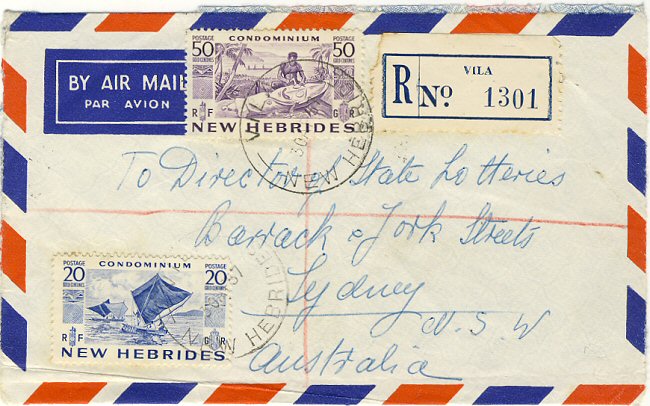 POSTAGE CONDOMINIUM POSTAGE
50 50
GOLD CENTIMES GOLD CENTIMES
R F G R
NEW HEBRIDES
BY AIR MAIL
PAR AVION
VILA
R No 1301
VILA
NEW HEBRIDES
To Director of State Lotteries
Barrack & York Streets
Sydney
N.S.W
Australia
POSTAGE CONDOMINIUM POSTAGE
20 20
GOLD CENTIMES GOLD CENTIMES
R F G R
NEW HEBRIDES
NEW HEBRIDES